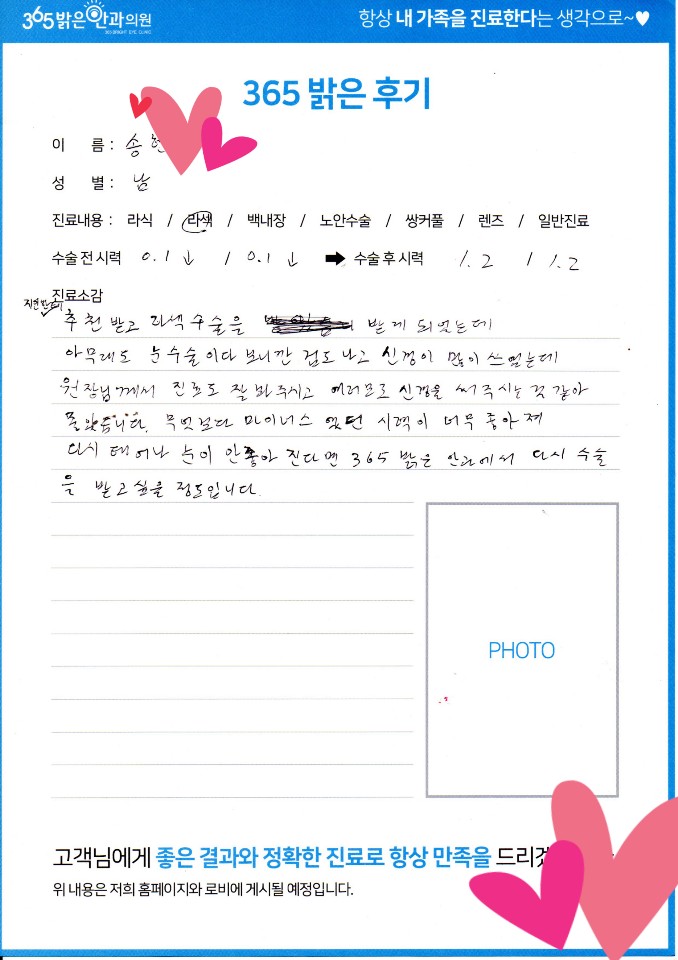 365 밝은안과의원
365 BRIGHT EYE CLINIC
항상 내 가족을 진료한다는 생각으로~♥
365 밝은 후기
이 름 : 송
성 별 : 남
진료내용 : 라식 / 라섹 / 백내장 / 노안수술 / 쌍커풀 / 렌즈 / 일반진료
수술 전 시력 0.1↓ / 0.1↓ ➡ 수술 후 시력 1.2 / 1.2
진료소감
추천 받고 라섹수술을 받게 되었는데
아무래도 눈수술이다 보니깐 겁도나고 신경이 많이 쓰였는데
원장님께서 진료도 잘 봐주시고 여러모로 신경을 써 주시는 것 같아
좋았습니다. 무엇보다 마이너스 였던 시력이 너무 좋아져
다시 태어나 눈이 안좋아 진다면 365 밝은 안과에서 다시 수술
을 받고 싶을 정도입니다.
PHOTO
고객님에게 좋은 결과와 정확한 진료로 항상 만족을 드리겠
위 내용은 저희 홈페이지와 로비에 게시될 예정입니다.